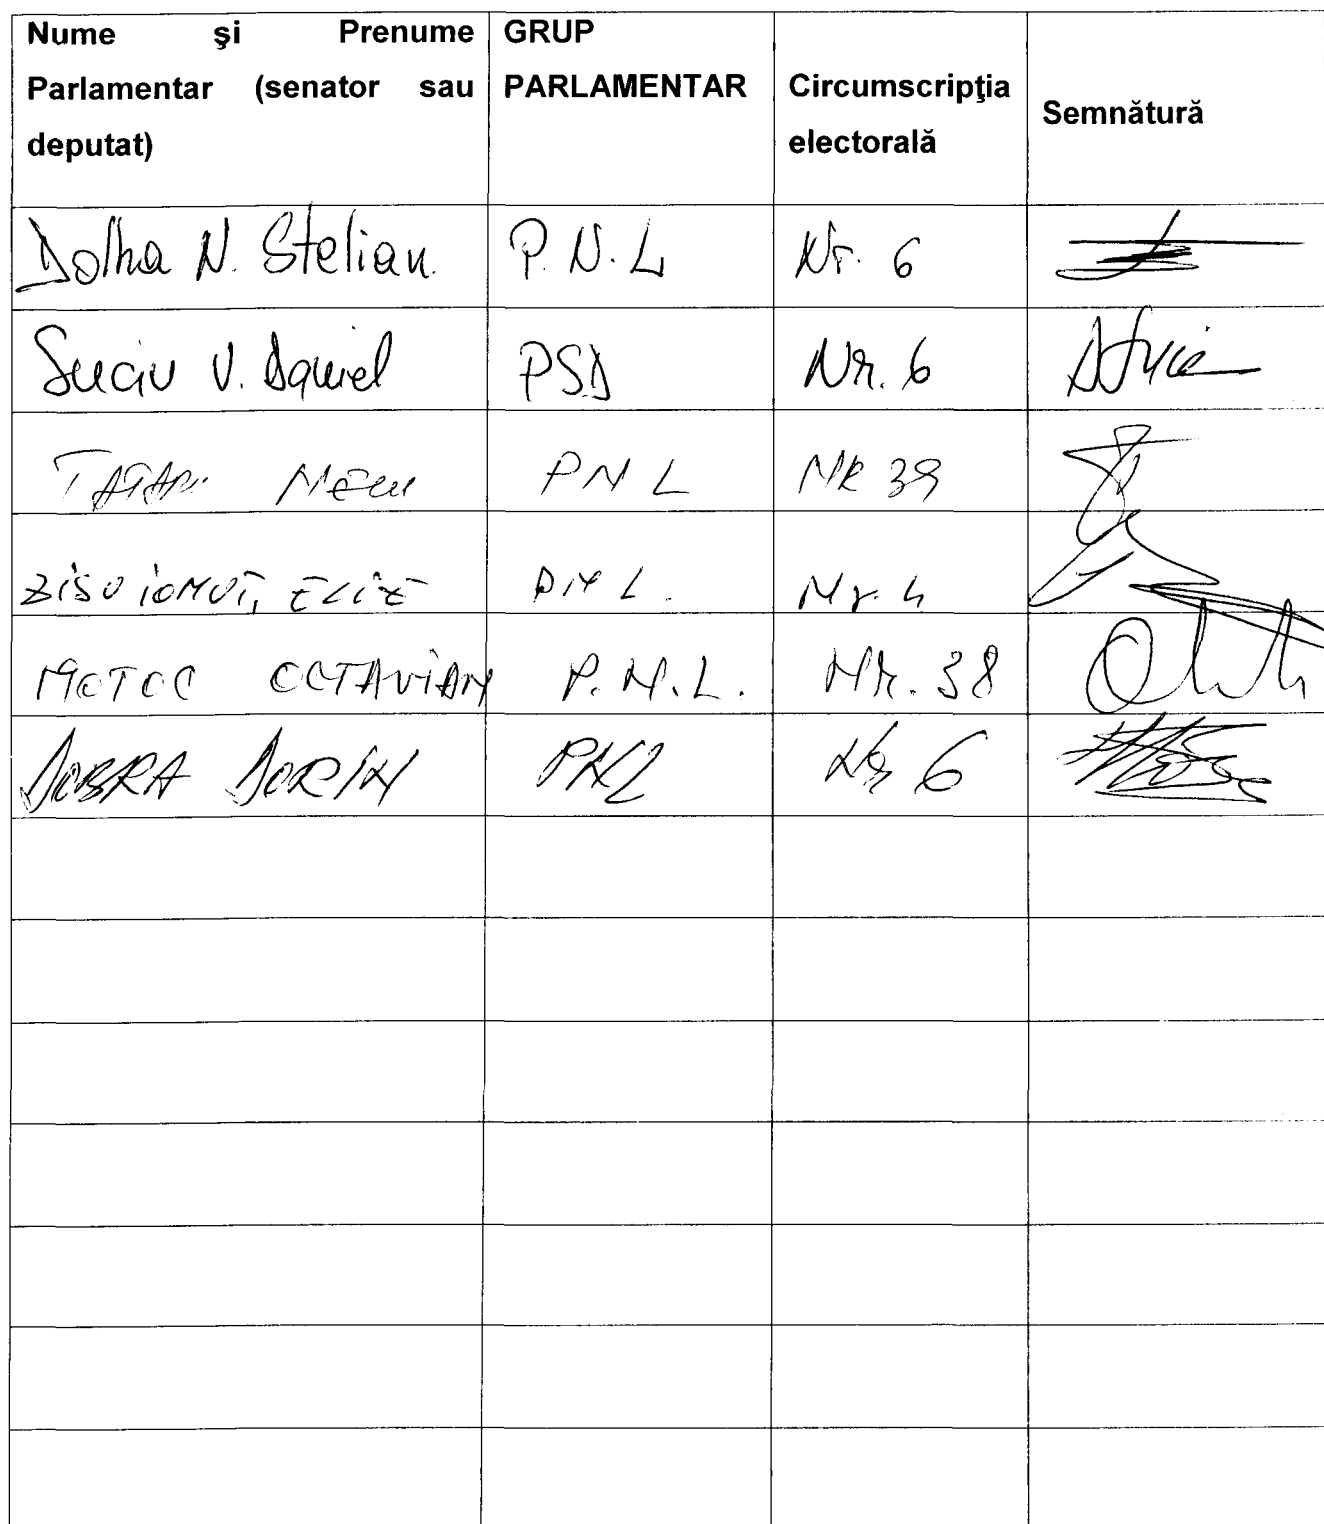 Nume şi Prenume
Parlamentar (senator sau
deputat)
GRUP
PARLAMENTAR
Circumscripţia
electorală
Semnătură
Dolha N. Stelian P.N.L Nr. 6
Suciu V. Daniel PSD Nr. 6
TATARU NELU PNL NR 39
ZISU IONUȚ, ELIE PNL. Nr. 4
MOTOC OCTAVIAN P.N.L. NR. 38
DOBRA DORIN PNL Nr 6